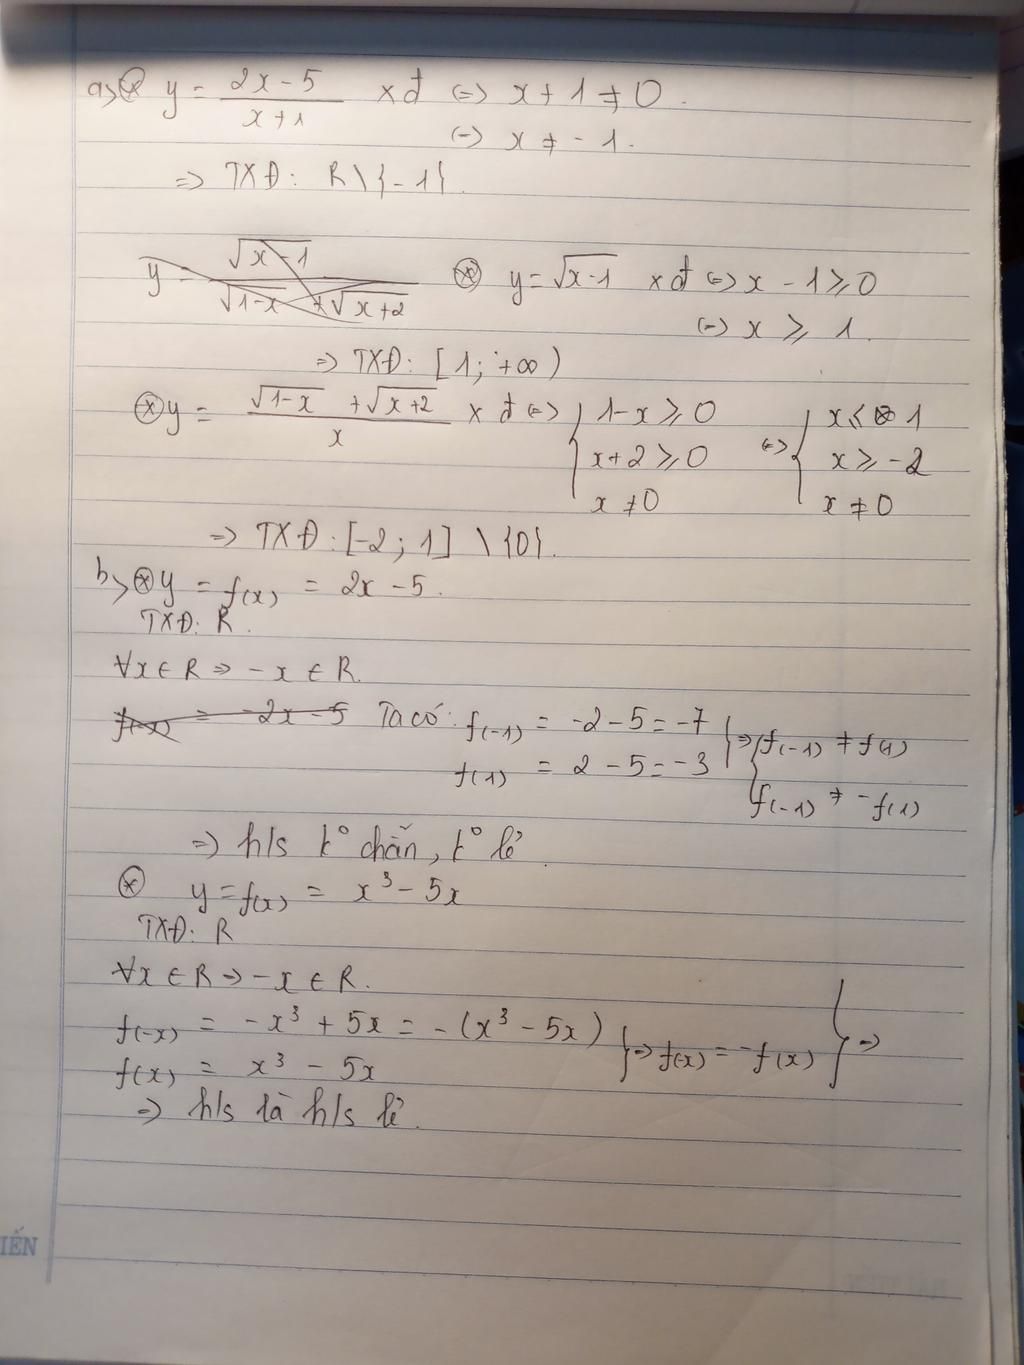 a, ⊛ y = (2x - 5)/(x + 1) xđ <=> x + 1 ≠ 0.
<=> x ≠ -1.
=> TXĐ: R \ {-1}.
y = √(x - 1)/(√(1-x) + √(x+2)) ⊛ y = √(x-1) xđ <=> x - 1 ≥ 0
<=> x ≥ 1.
=> TXĐ: [1; +∞)
⊛ y = (√(1-x) + √(x+2))/x xđ <=> { 1-x ≥ 0 <=> { x ≤ 1
x+2 ≥ 0 x ≥ -2
x ≠ 0 x ≠ 0
=> TXĐ: [-2; 1] \ {0}.
b, ⊛ y = f(x) = 2x - 5.
TXĐ: R.
∀x ∈ R => -x ∈ R.
f(-x) = -2x - 5 Ta có: f(-1) = -2 - 5 = -7 } => { f(-1) ≠ f(1)
f(1) = 2 - 5 = -3
f(-1) ≠ -f(1)
=> h/s k° chẵn, k° lẻ.
⊛ y = f(x) = x³ - 5x
TXĐ: R
∀x ∈ R => -x ∈ R.
f(-x) = -x³ + 5x = -(x³ - 5x) } => f(-x) = -f(x) } =>
f(x) = x³ - 5x
=> h/s là h/s lẻ.
IẾN